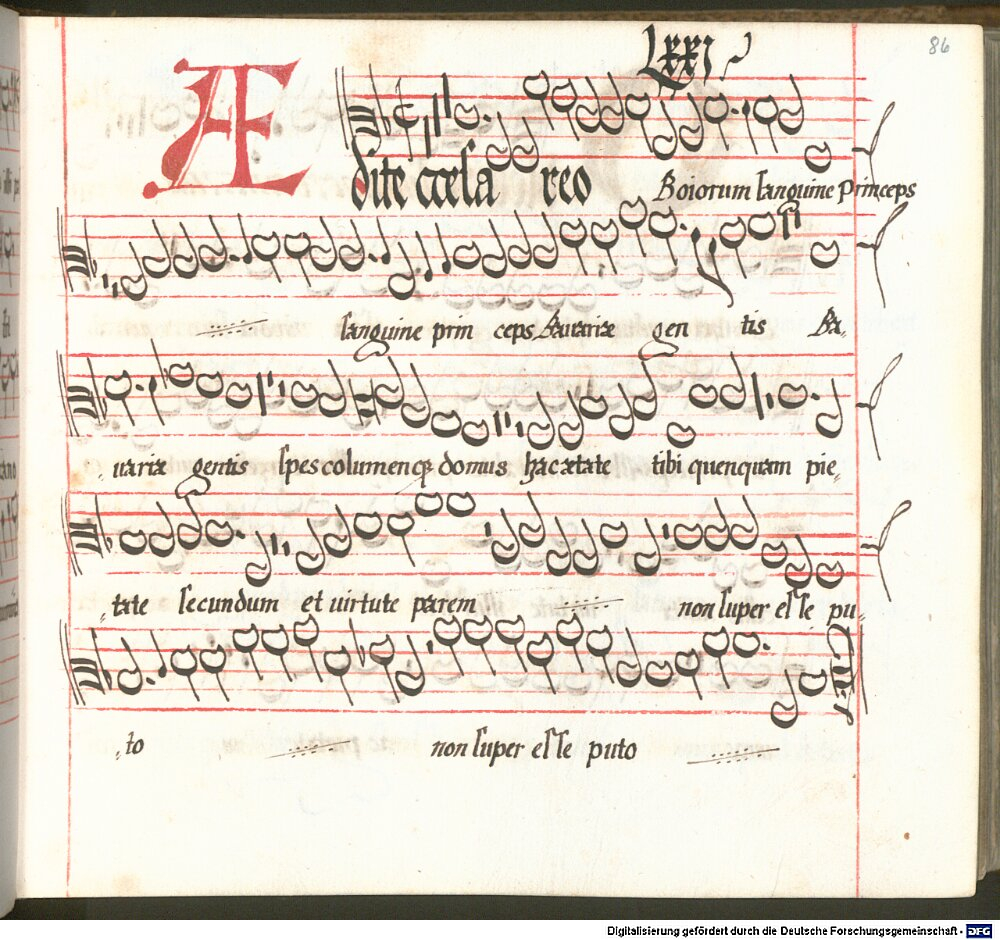 LXXI
86
ÆDite cœsa reo Boiorum sanguine Princeps
sanguine prin ceps Bauariæ gen tis Ba,
uariæ gentis spes columenq; domus hac ætate tibi quenquam pie,
„tate secundum et uirtute parem non super esse pu„
„to non super esse puto
Digitalisierung gefördert durch die Deutsche Forschungsgemeinschaft - DFG